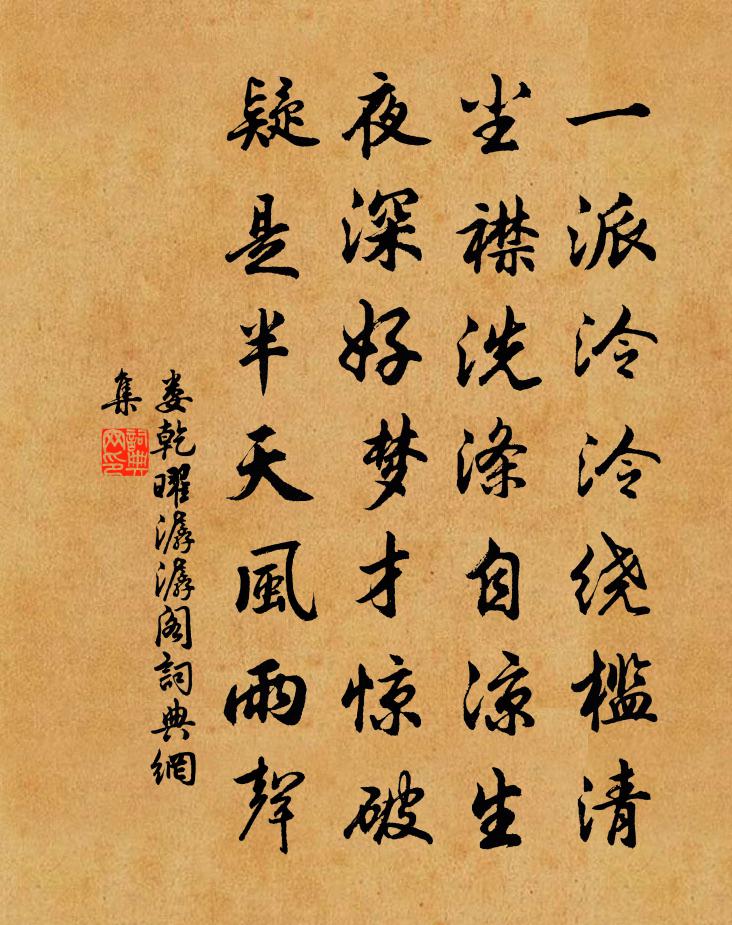 一派泠泠绕槛清
尘襟洗涤自凉生
夜深好梦才惊破
疑是半天風雨聲
娄乾曜潺潺阁詞典網
集
詞典
网印